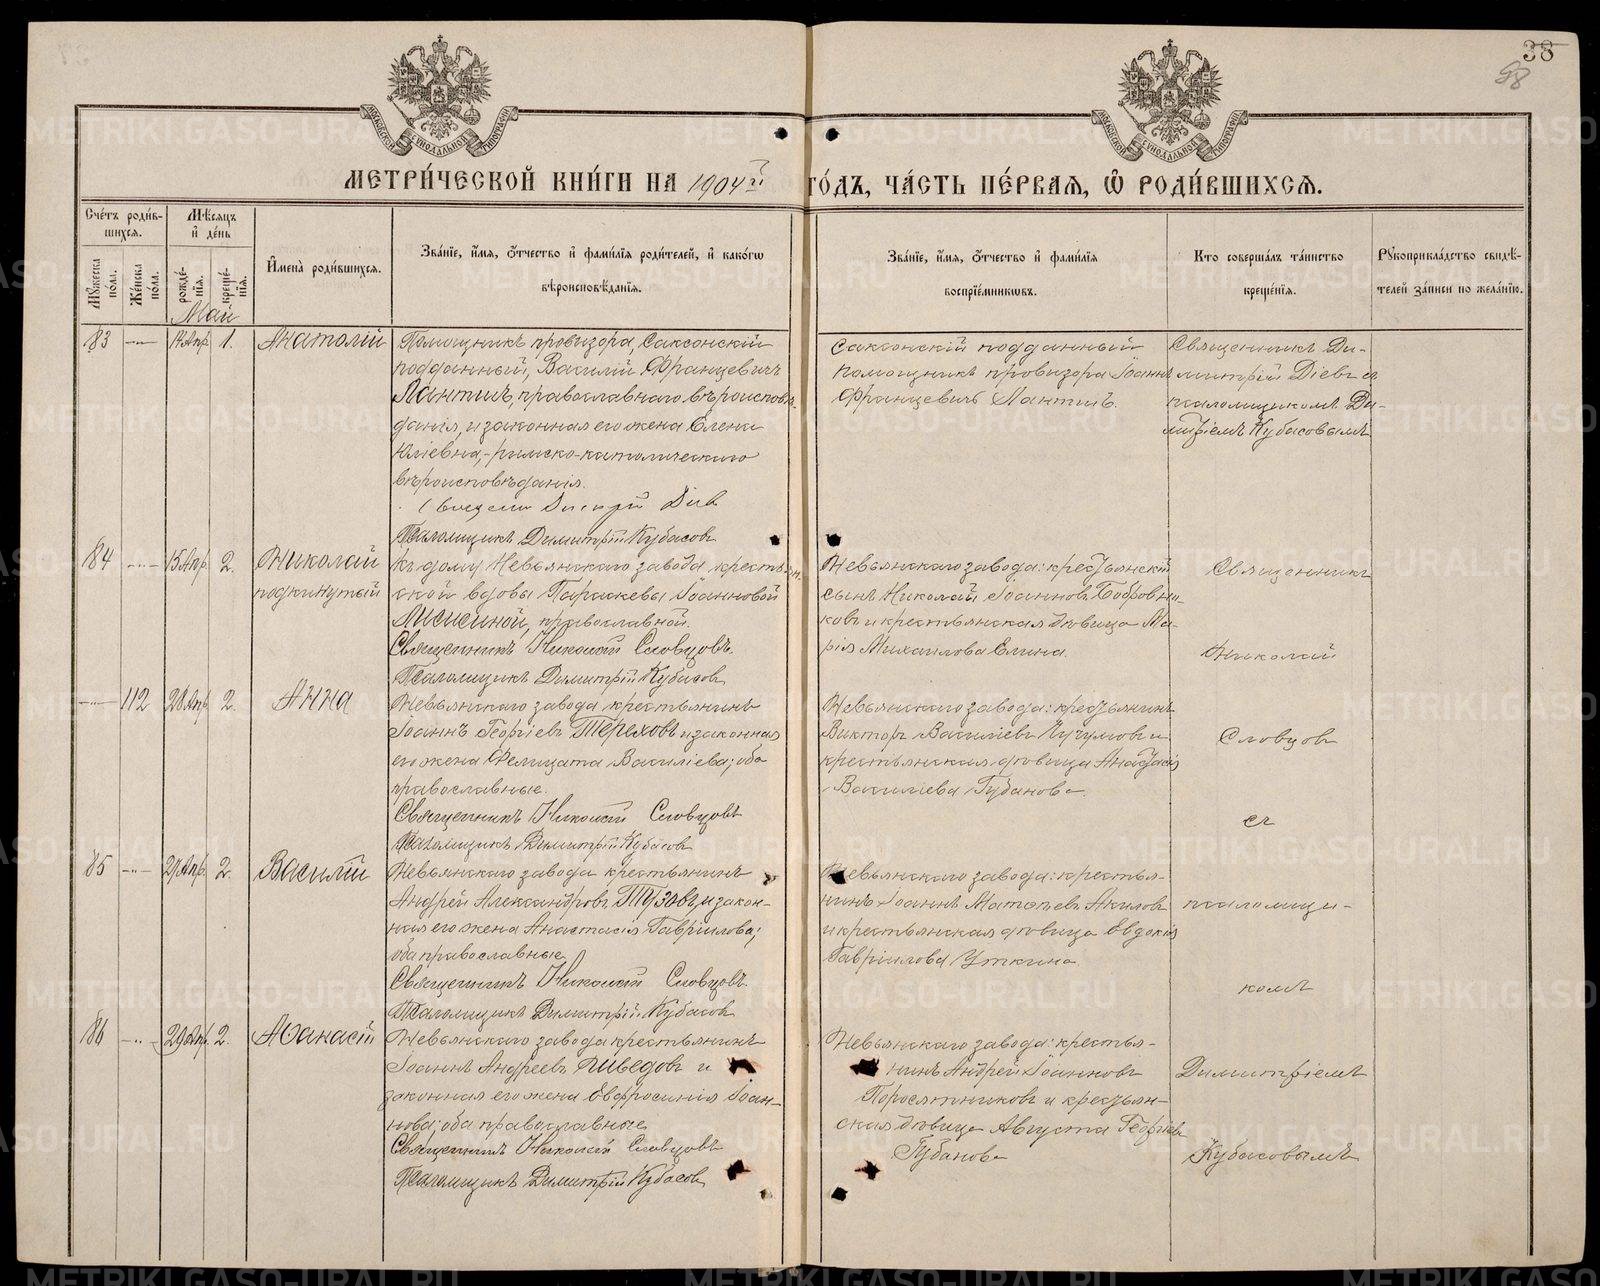 38
98
МЕТРИ́ЧЕСКОЙ КНИ́ГИ НА 1904й ГО́ДЪ, ЧА́СТЬ ПЕ́РВАЯ, Ѽ РОДИ́ВШИХСЯ.
МОСКОВСКОЙ СѴНОДАЛЬНОЙ ТИПОГРАФІИ
МОСКОВСКОЙ СѴНОДАЛЬНОЙ ТИПОГРАФІИ
Сче́тъ роди́вшихся.
Мꙋжеска по́ла.
Же́нска по́ла.
Мѣ́сяцъ и҆ де́нь
рожде́нїя.
креще́нїя.
Май
И҆мена̀ роди́вшихся.
Зва́нїе, и҆́мя, ѻ҆́тчество и҆ фами́лїя роди́телей, и҆ како́гѡ вѣроисповѣ́данїя.
Зва́нїе, и҆́мя, ѻ҆́тчество и҆ фами́лїя воспрїе́мникѡвъ.
Кто̀ соверша́лъ та́инство креще́нїя.
Рꙋкоприкла́дство свидѣ́телей за́писи по жела́нїю.
83 -"- 14 Апр. 1. Анатолій
Помощникъ провизора, Саксонскій
подданный, Василій Францевичъ
Лантшъ, православнаго вѣроисповѣ-
данія, и законная его жена Елена
Юліевна, - римско-католическаго
вѣроисповѣданія.
Псаломщикъ Димитрій Кубасовъ
Саксонскій подданный
помощникъ провизора Іоаннъ
Францевичъ Лантшъ.
Священникъ Ди-
митрій Діевъ съ
псаломщикомъ Ди-
митріемъ Кубасовымъ
84 -"- 15 Апр. 2. Николай
подкинутый
къ дому Невьянскаго завода крестьян-
ской вдовы Параскевы Іоанновой
Лисиciной, православной.
Священникъ Николай Словцовъ.
Псаломщикъ Димитрій Кубасовъ
Невьянскаго завода: крестьянскій
сынъ Николай Іоанновъ Бобровни-
ковъ и крестьянская дѣвица Ма-
рія Михаилова Елина.
Священникъ
Николай
-"- 112 28 Апр. 2. Анна
Невьянскаго завода крестьянинъ
Іоаннъ Георгіевъ Тереховъ и законная
его жена Фелицата Василіева; оба
православные.
Священникъ Николай Словцовъ
Псаломщикъ Димитрій Кубасовъ
Невьянскаго завода: крестьянинъ
Викторъ Василіевъ Кучумовъ и
крестьянская дѣвица Анастасія
Василіева Губанова.
Словцовъ
съ
85 -"- 29 Апр. 2. Василій
Невьянскаго завода крестьянинъ
Андрей Александровъ Тузовъ, и закон-
ная его жена Анастасія Гавріилова;
оба православные.
Священникъ Николай Словцовъ.
Псаломщикъ Димитрій Кубасовъ
Невьянскаго завода: крестья-
нинъ Іоаннъ Матѳіевъ Акиловъ
и крестьянская дѣвица Евдокія
Гавріилова Уткина.
псаломщи-
комъ
86 -"- 29 Апр. 2. Аѳанасій
Невьянскаго завода крестьянинъ
Іоаннъ Андреевъ Шведовъ и
законная его жена Евфросинія Іоан-
нова; оба православные
Священникъ Николай Словцовъ
Псаломщикъ Димитрій Кубасовъ
Невьянскаго завода: крестья-
нинъ Андрей Іоанновъ
Поросятниковъ и крестьян-
ская дѣвица Августа Георгіева
Губанова
Димитріемъ
Кубасовымъ
METRIKI.GASO-URAL.RU